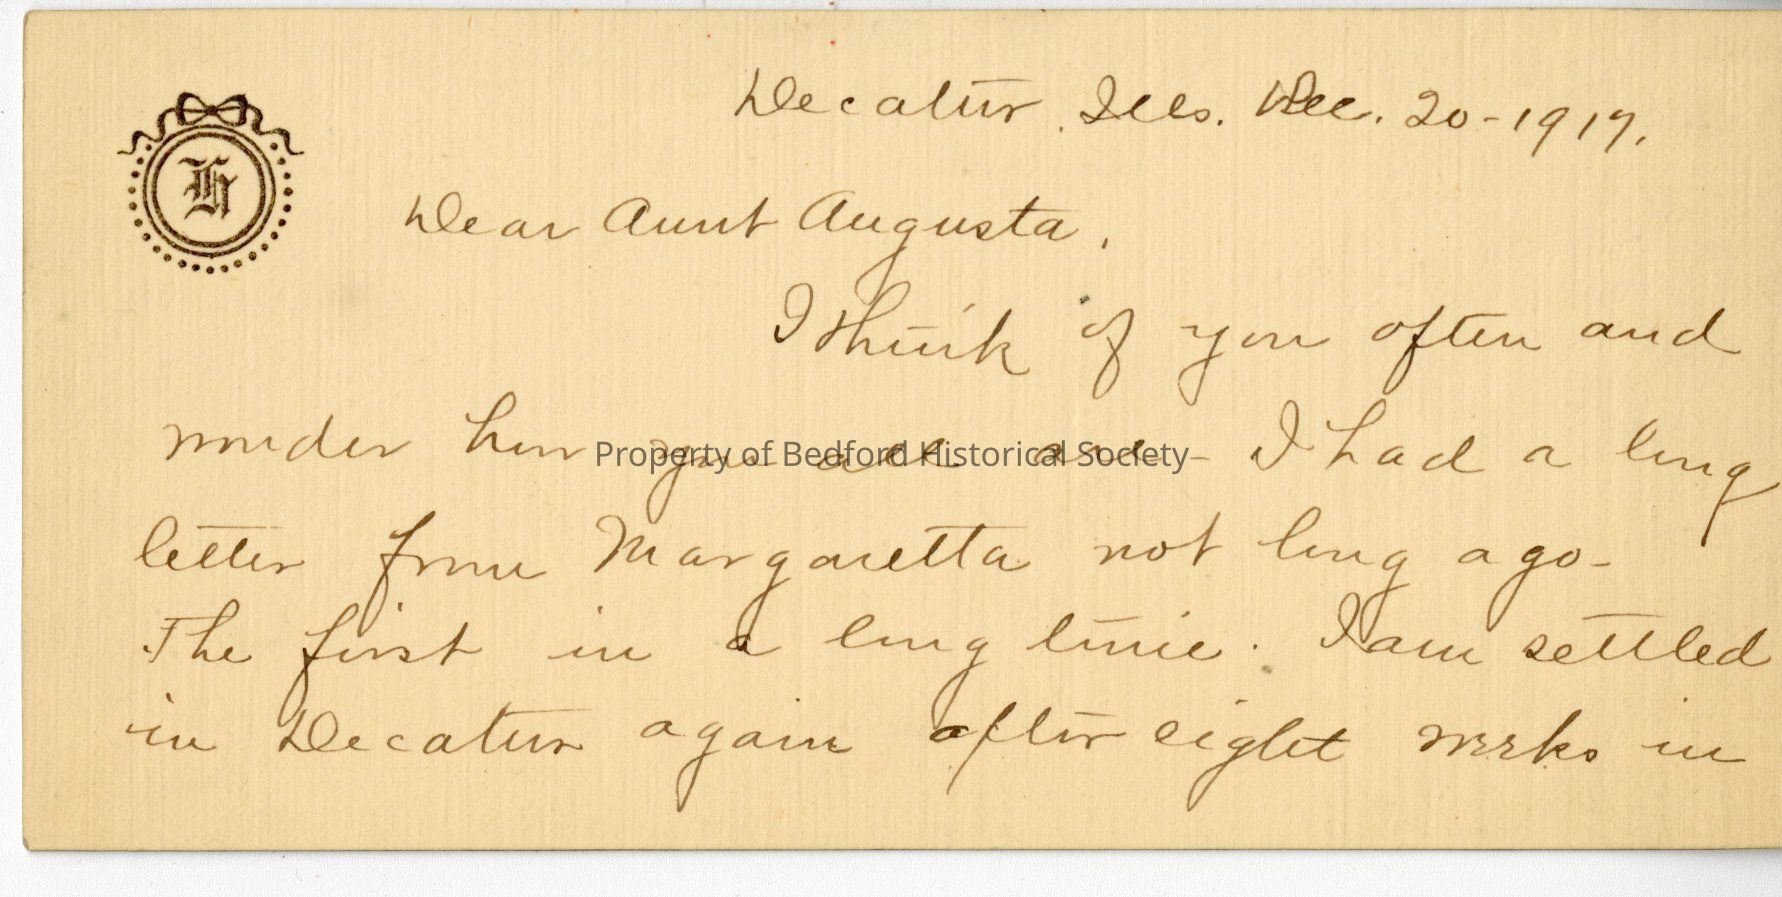 Decatur, Ills. Dec. 20-1917.
H
Dear Aunt Augusta,
I think of you often and
wonder how you all are - I had a long
letter from Margaretta not long ago -
The first in a long time. I am settled
in Decatur again after eight weeks in
Property of Bedford Historical Society